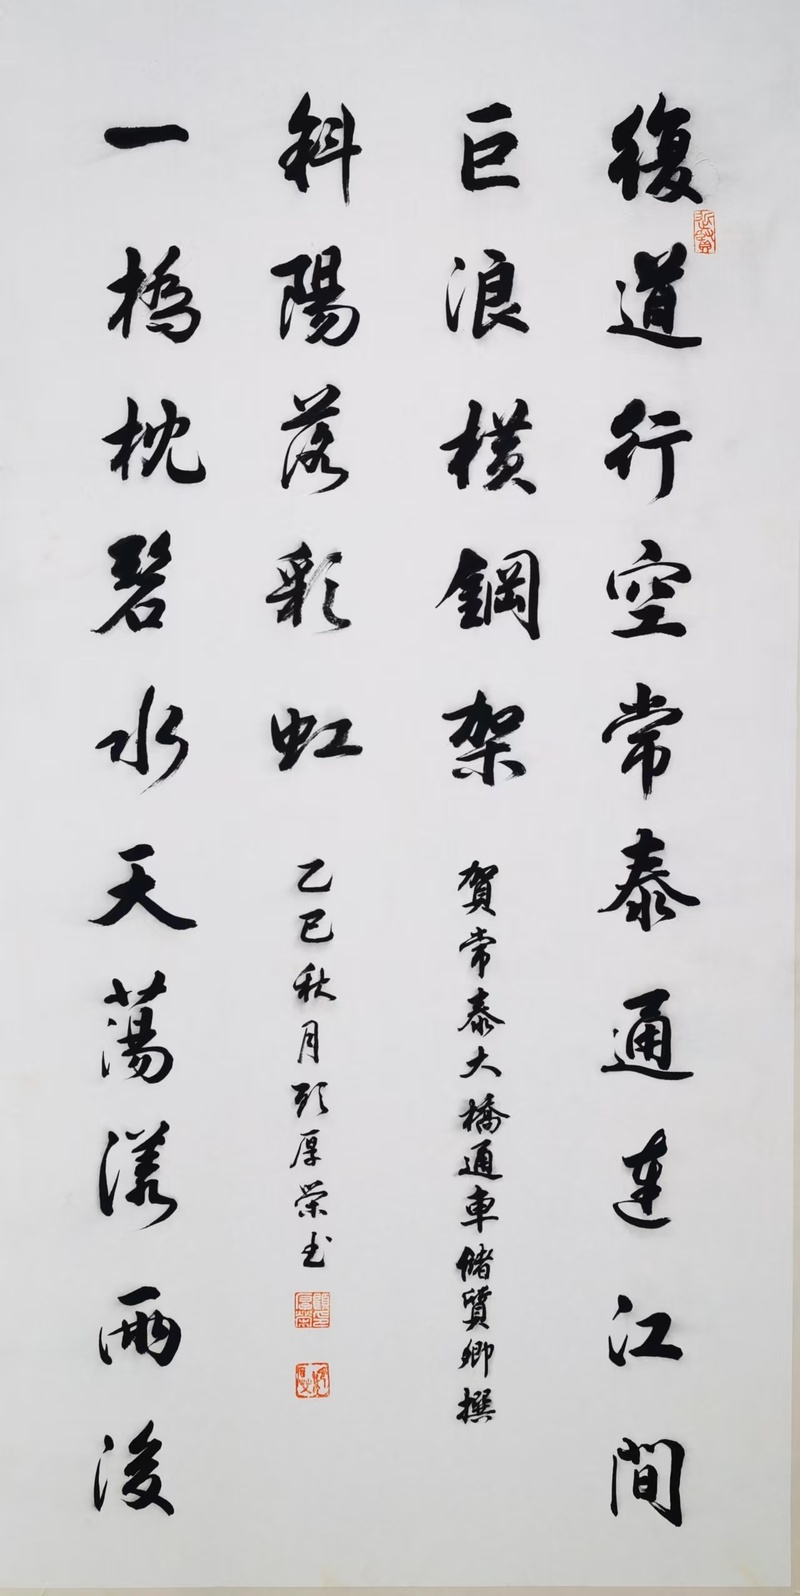 復道行空常泰通連江間
巨浪橫鋼架
賀常泰大橋通車儲質卿撰
一橋枕碧水天蕩漾雨後
斜陽落彩虹
乙巳秋月顧厚榮书